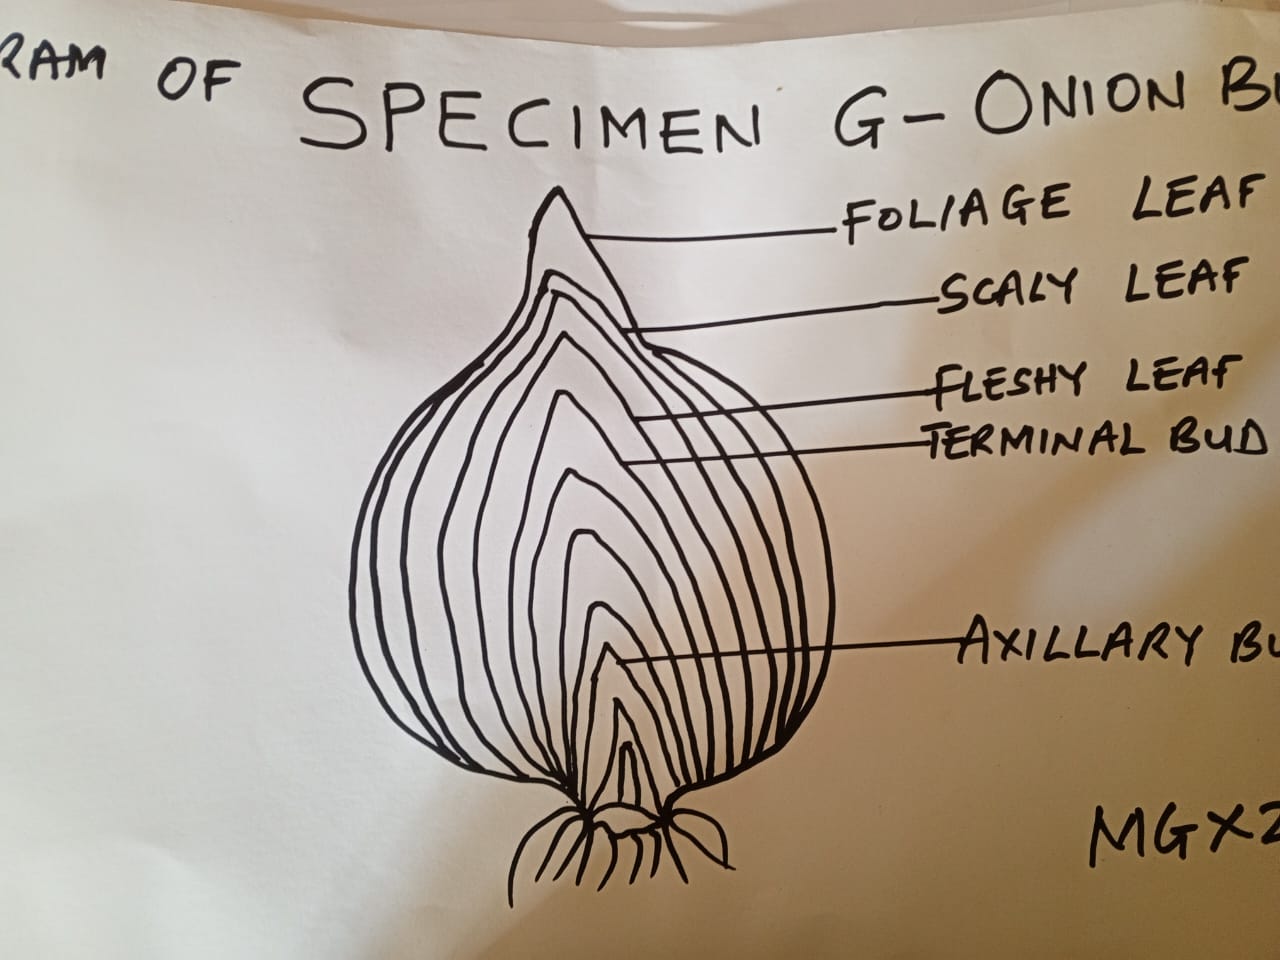 RAM OF SPECIMEN G- ONION BU
FOLIAGE LEAF
SCALY LEAF
FLESHY LEAF
TERMINAL BUD
AXILLARY BU
MGX2